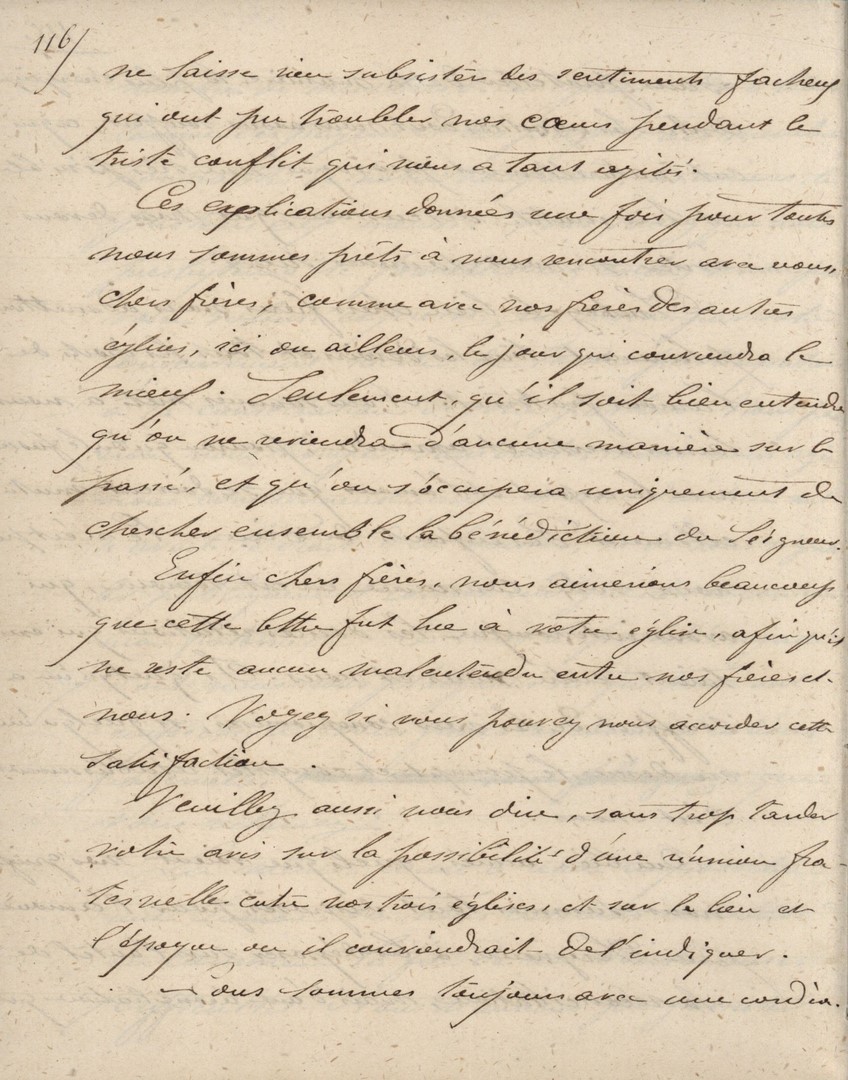 116/
ne laisse rien subsister des sentiments facheux
qui ont pu troubler nos cœurs pendant le
triste conflit qui nous a tant agités.
Ces explications données une fois pour toutes
nous sommes prêts à nous rencontrer avec vous,
chers frères, comme avec nos frères des autres
églises, ici ou ailleurs, le jour qui conviendra le
mieux. Seulement, qu'il soit bien entendu
qu'on ne reviendra d'aucune manière sur le
passé, et qu'on s'occupera uniquement de
chercher ensemble la bénédiction du Seigneur.
Enfin chers frères, nous aimerions beaucoup
que cette lettre fut lue à votre église, afin qu'il
ne reste aucun malentendu entre nos frères et
nous. Voyez si vous pouvez nous accorder cette
satisfaction.
Veuillez aussi nous dire, sans trop tarder
votre avis sur la possibilité d'une réunion fra-
ternelle entre nos trois églises, et sur le lieu et
l'époque ou il conviendrait de l'indiquer.
Nous sommes toujours avec une cordia-